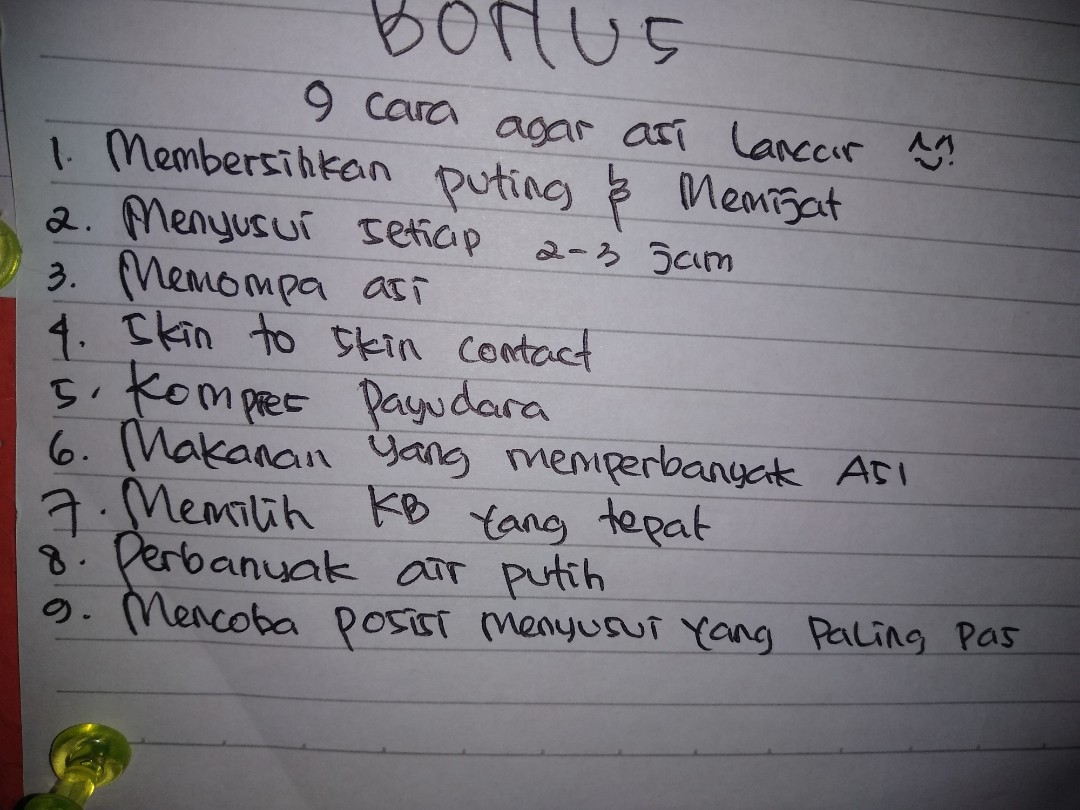 BONUS
9 cara agar asi Lancar ^^?
1. Membersihkan puting & Memijat
2. Menyusui setiap 2-3 jam
3. Memompa asi
4. Skin to skin contact
5. Kompres Payudara
6. Makanan yang memperbanyak ASI
7. Memilih KB Yang tepat
8. Perbanyak air putih
9. Mencoba posisi menyusui Yang Paling Pas